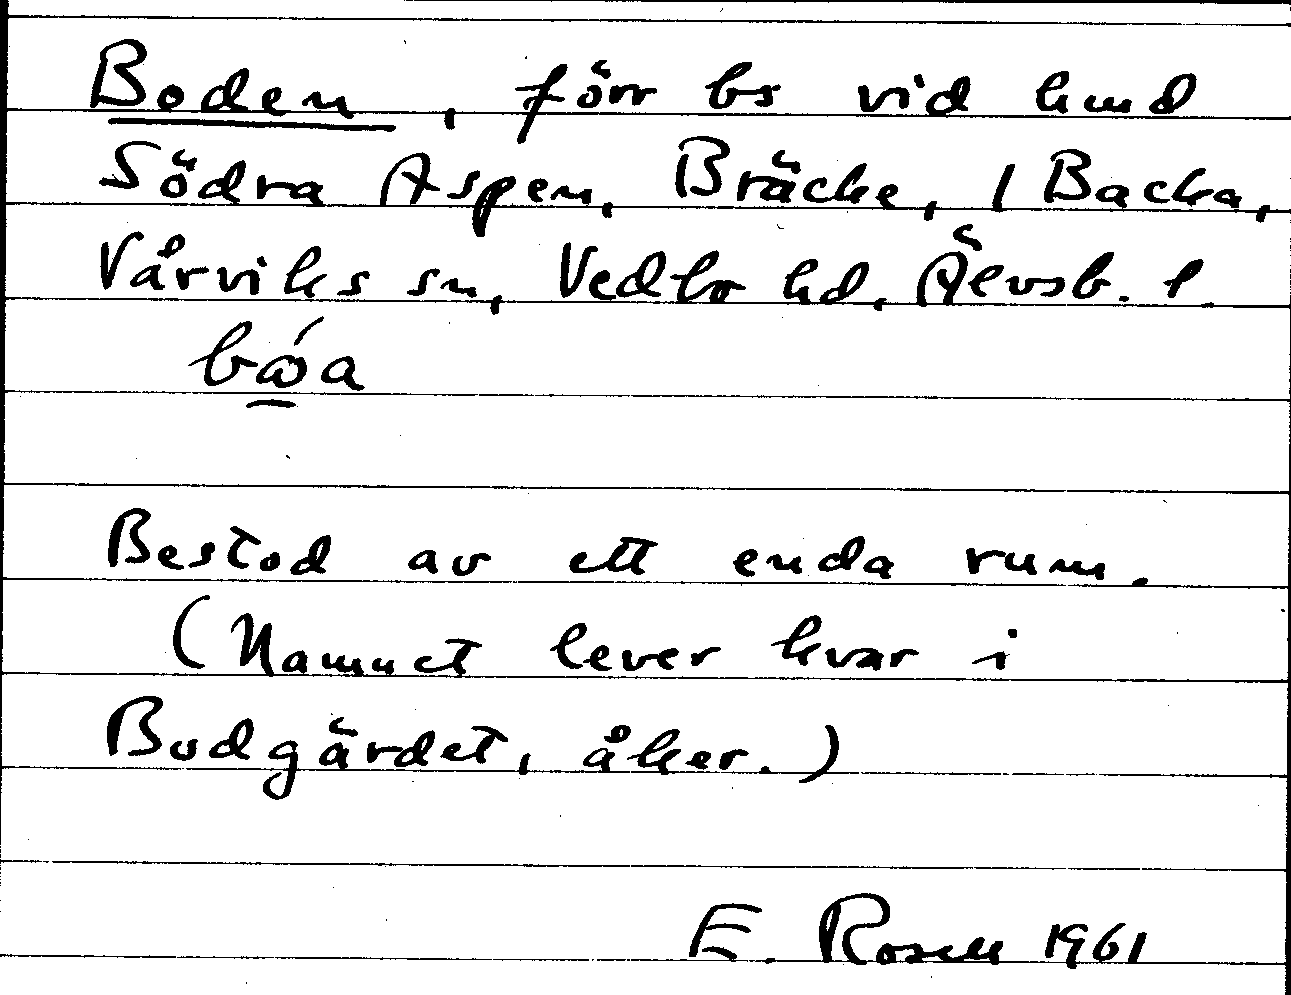 Boden, förr bs vid hmd
Södra Aspen, Bräcke, 1 Backa,
Vårviks sn, Vedbo hd, Älvsb. l.
Bestod av ett enda rum.
(Namnet lever kvar i
Bodgärdet, åker.)
E. Rosell 1961